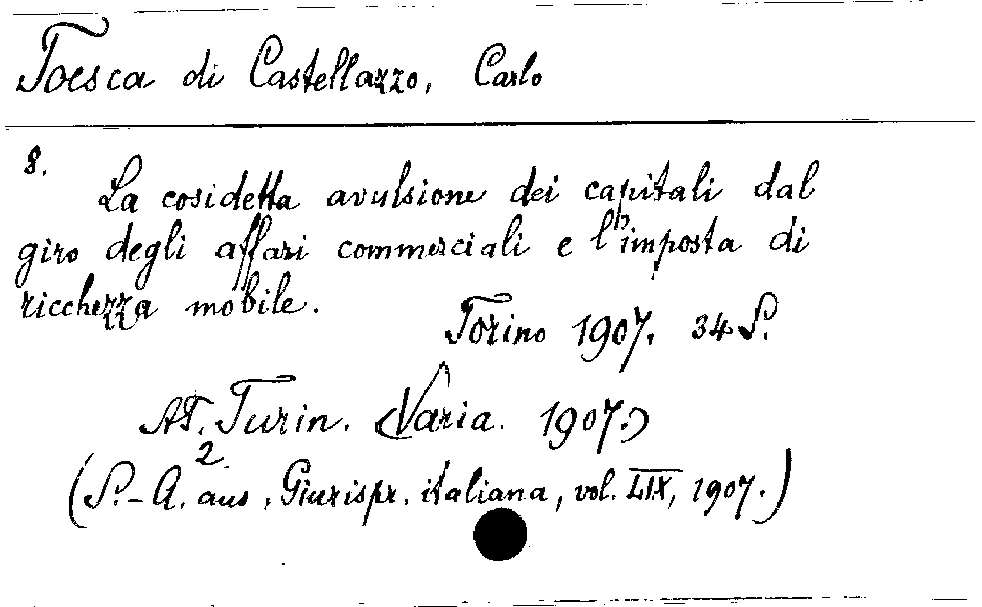 Toesca di Castellazzo, Carlo
8.
La cosidetta avulsione dei capitali dal
giro degli affari commerciali e l'imposta di
ricchezza mobile.
Torino 1907. 34 S.
AT. Turin. (Varia. 1907.)
2.
(S.-A. aus, Giurispr. italiana, vol. LIX, 1907.)